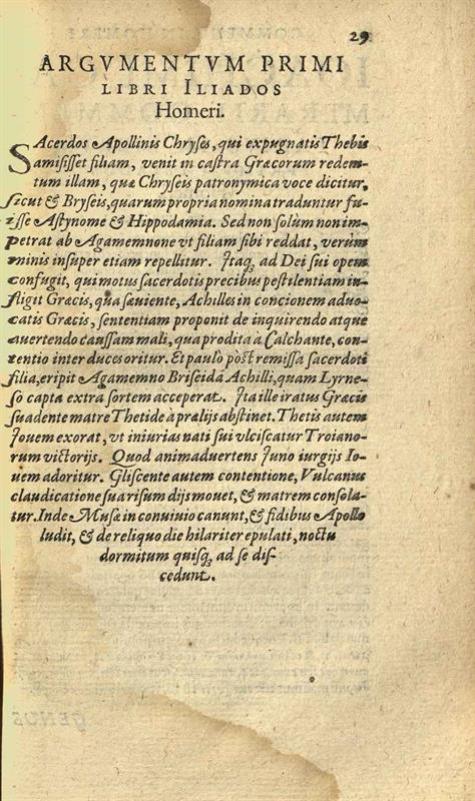 29
ARGVMENTVM PRIMI
LIBRI ILIADOS
Homeri.
SAcerdos Apollinis Chryses, qui expugnatis Thebis
amisisset filiam, venit in castra Græcorum redem-
tum illam, quæ Chryseis patronymica voce dicitur,
sicut & Bryseis, quarum propria nomina traduntur fu-
isse Astynome & Hippodamia. Sed non solùm non im-
petrat ab Agamemnone vt filiam sibi reddat, verùm
minis insuper etiam repellitur. Itaq; ad Dei sui opem
confugit, qui motus sacerdotis precibus pestilentiam in-
fligit Græcis, qua sæuiente, Achilles in concionem aduo-
catis Græcis, sententiam proponit de inquirendo atque
auertendo caussam mali, qua prodita à Calchante, con-
tentio inter duces oritur. Et paulò pòst remissa sacerdoti
filia, eripit Agamemno Briseidã Achilli, quam Lyrne-
so capta extra sortem acceperat. Ita ille iratus Græcis
suadente matre Thetide à prælijs abstinet. Thetis autem
Iouem exorat, vt iniurias nati sui vlciscatur Troiano-
rum victorijs. Quod animaduertens Iuno iurgijs Io-
uem adoritur. Gliscente autem contentione, Vulcanus
claudicatione sua risum dijs mouet, & matrem consola-
tur. Inde Musæ in conuiuio canunt, & fidibus Apollo
ludit, & de reliquo die hilariter epulati, noctu
dormitum quisq; ad se dis-
cedunt.